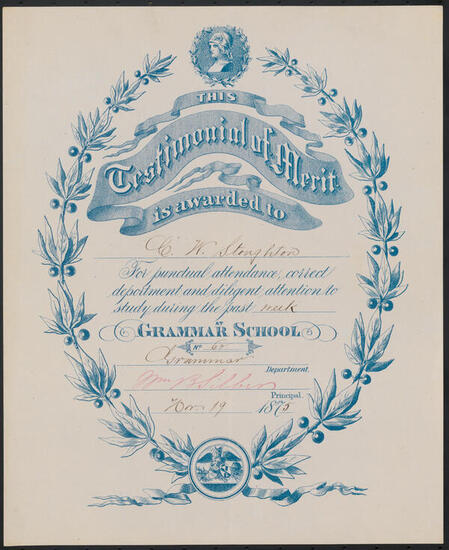 THIS
Testimonial of Merit
is awarded to
C. W. Stoughton
For punctual attendance, correct
deportment and diligent attention to
study during the past week
AT
GRAMMAR SCHOOL
No 60
Grammar
Department.
Wm B Silber
Principal.
Nov. 19 1875